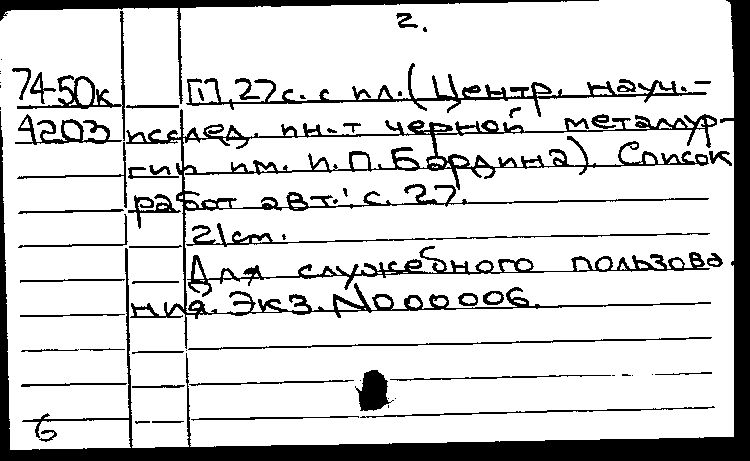 2.
74-50к [1], 27с. с ил. (Центр. науч.-
4203 исслед. ин-т черной металлур-
гии им. И.П. Бардина). Список
работ авт.: с. 27.
21 cm.
Для служебного пользова
ния. Экз. N000006.
6